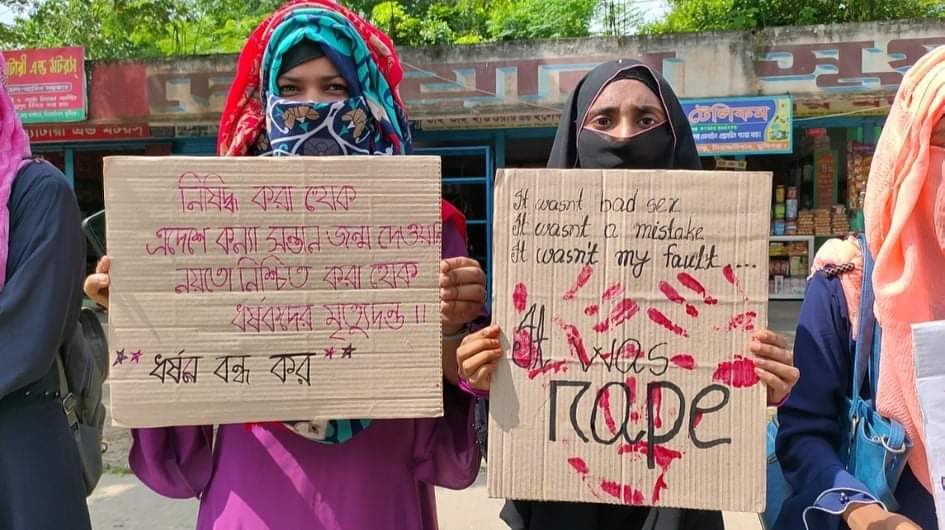 টারী এন্ড মটরস
টেলিকম
নিষিদ্ধ করা হোক
এদেশে কন্যা সন্তান জন্ম দেওয়া
নয়তো নিশ্চিত করা হোক
ধর্ষকদের মৃত্যুদন্ড !!
** ধর্ষন বন্ধ কর **
It wasnt bad sex
It wasnt a mistake
It wasn't my fault ...
It was
rape